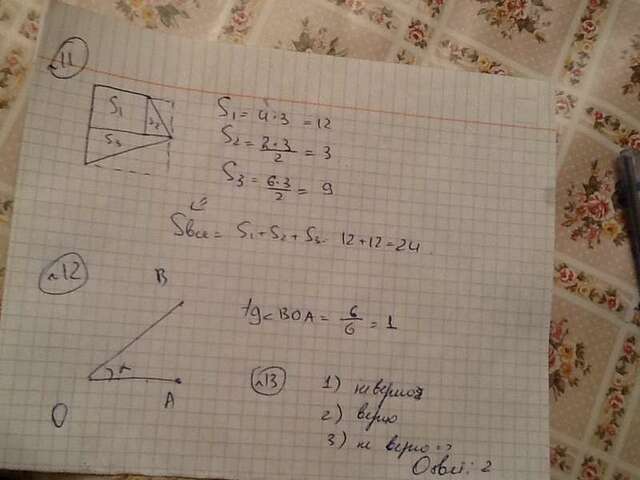 н11
S1
S2
S3
S1 = 4·3 = 12
S2 = 2·3/2 = 3
S3 = 6·3/2 = 9
Sвсе = S1 + S2 + S3 = 12+12=24
н12
B
O
A
tg<BOA = 6/6 = 1
н13
1) неверно
2) верно
3) не верно
Ответ: 2